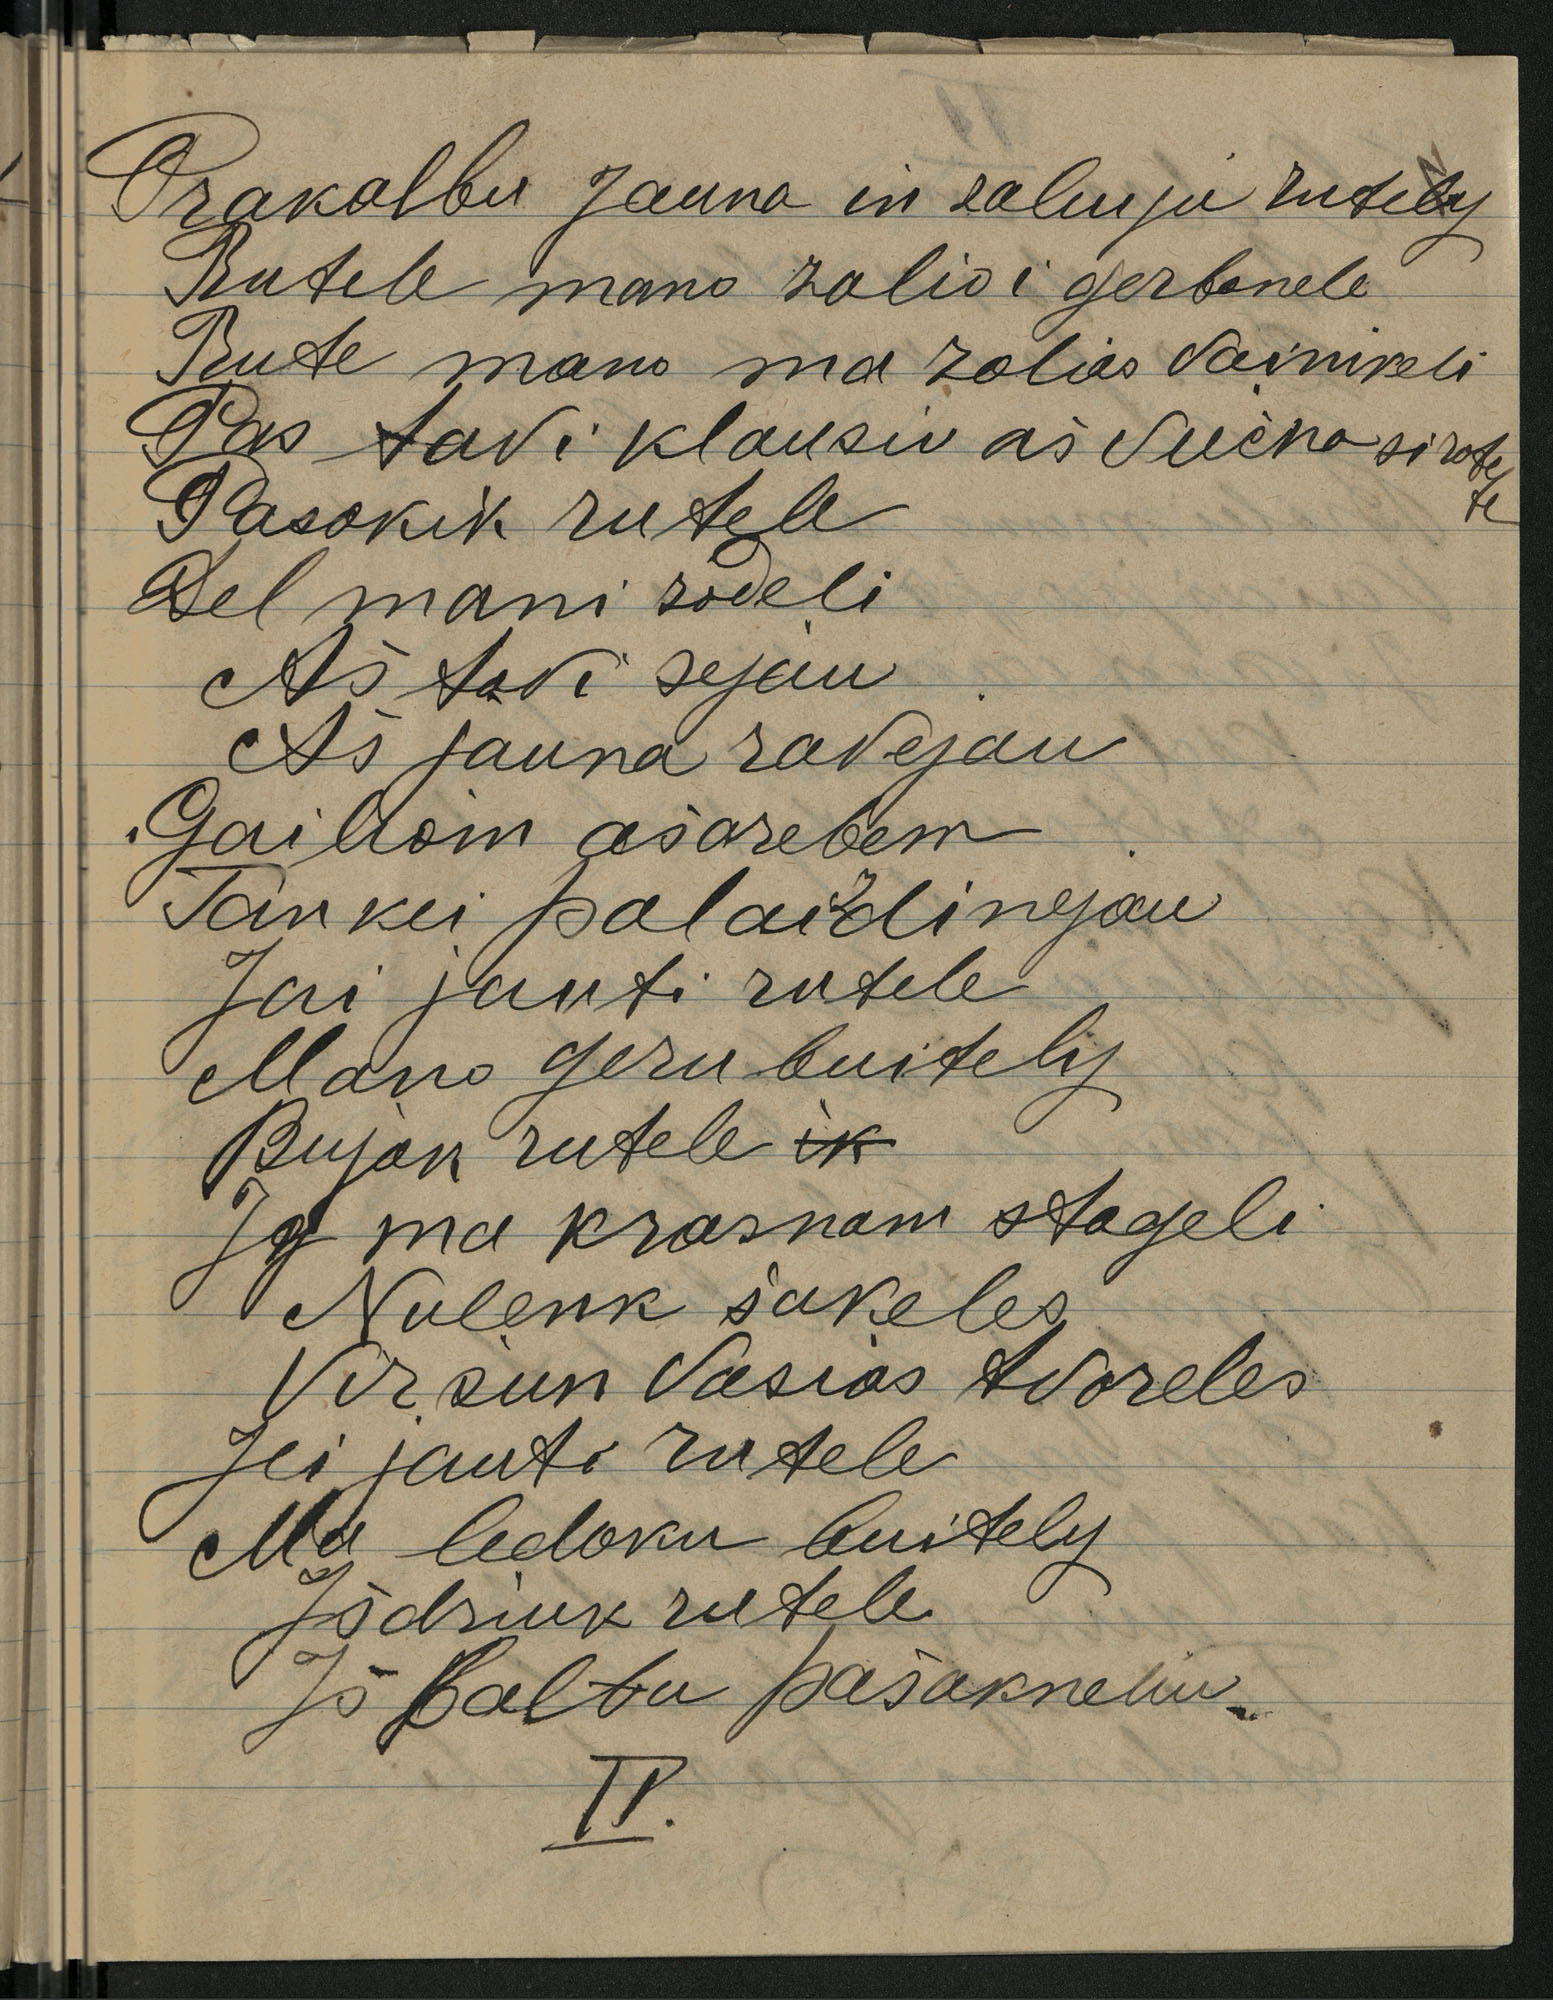 Prakalbu Jauna in zaluju rutely
Rutele mano zalioi gerbenele
Rute mano ma zolias Vainikeli
Pas tavi klausiu aš Vučna sirotele
Pasokik rutele
Del mani zodeli
Aš tavi sejau
Aš jauna ravejau
Gailiom ašarelem
Tankei palaizdinejau
Jai jauti rutele
Mano geru buitely
Bujok rutele ik
Ig ma krasnam stogeli
Nulenk šakeles
Viršun Vasias tvoreles
Jei jauti rutele
Ma ledoku buitely
Jšdziuk rutele
Jš Baltu pašakneliu
IV.